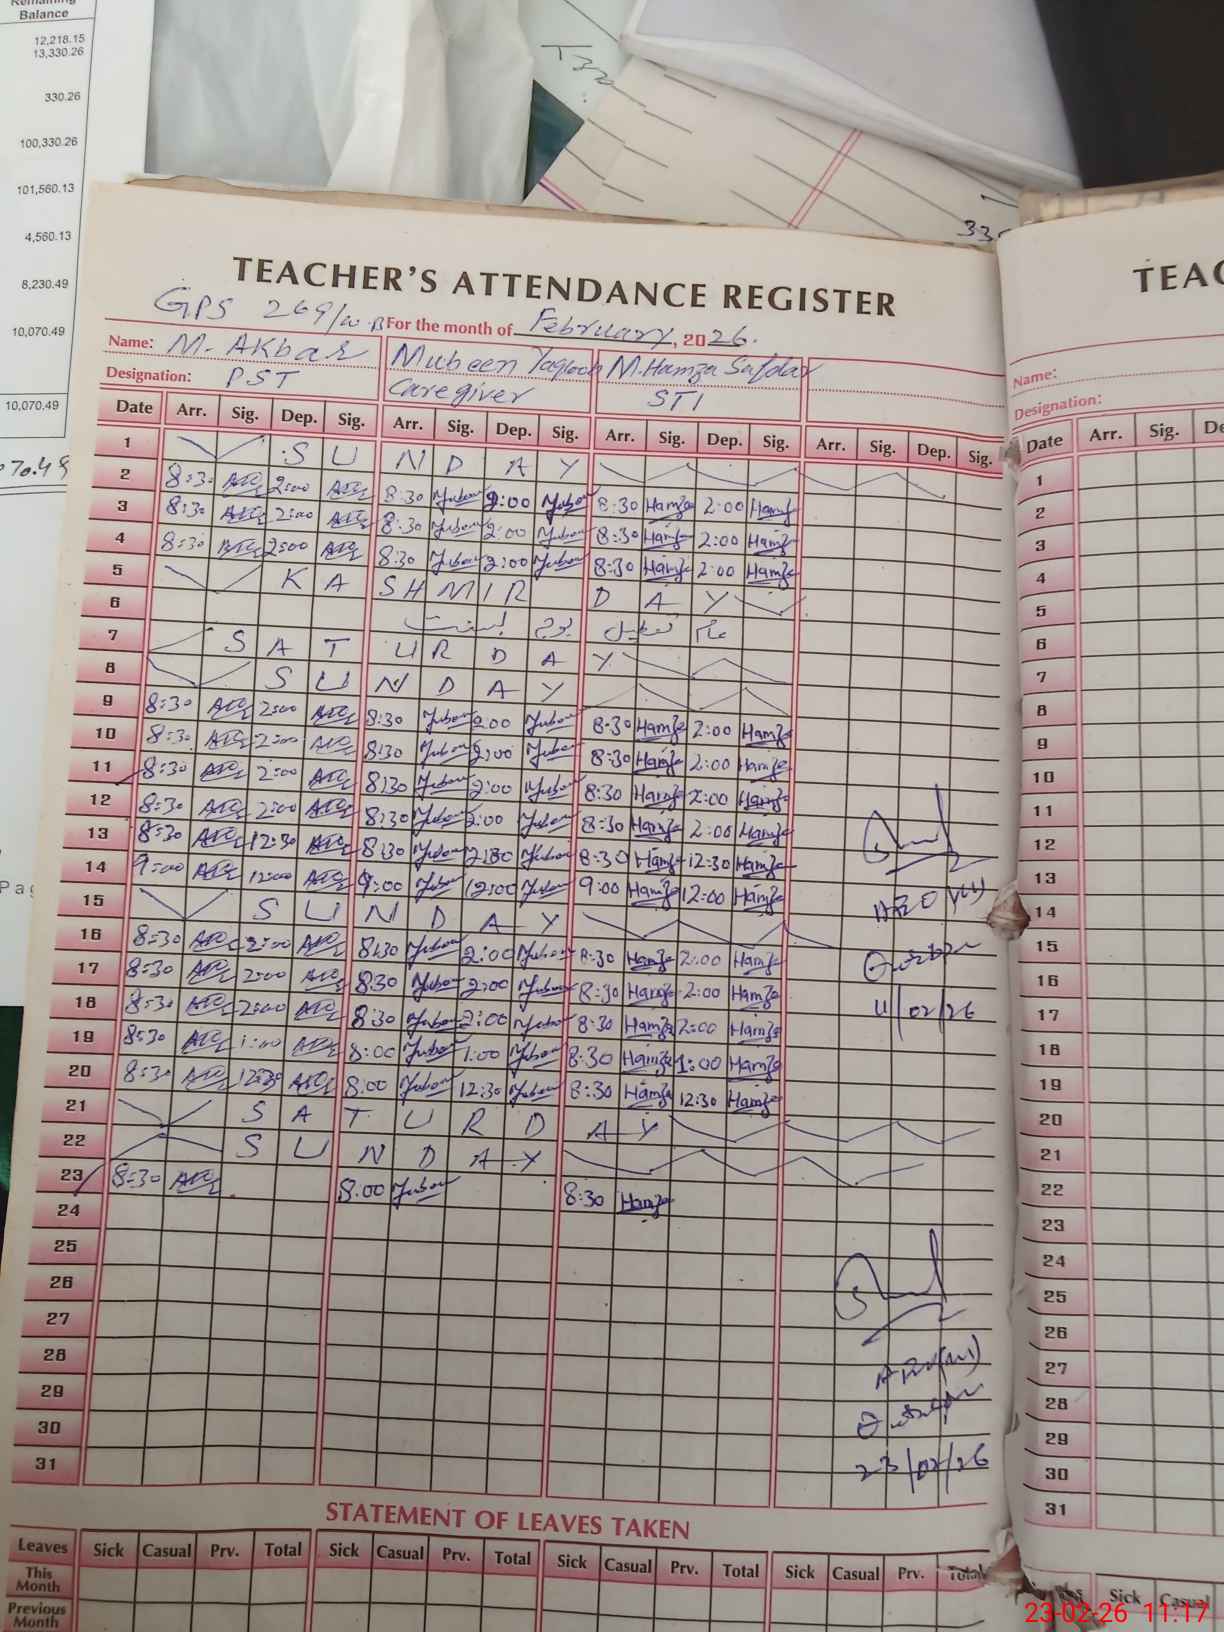 Remaining
Balance
12,218.15
13,330.26
330.26
100,330.26
101,560.13
4,560.13
8,230.49
10,070.49
10,070.49
TEACHER'S ATTENDANCE REGISTER
GPS 269/W.B For the month of February, 2026.
Name: M. Akbar Mubeen Yaqoob M. Hamza Safdar
Designation: PST Caregiver STI
Date Arr. Sig. Dep. Sig. Arr. Sig. Dep. Sig. Arr. Sig. Dep. Sig. Arr. Sig. Dep. Sig.
1 S U N D A Y
2 8:30 2:00 8:30 2:00 8:30 Hamza 2:00 Hamza
3 8:30 2:00 8:30 2:00 8:30 Hamza 2:00 Hamza
4 8:30 2:00 8:30 2:00 8:30 Hamza 2:00 Hamza
5 K A SH M I R D A Y
6 عام تعطیل بوجہ بسنت
7 S A T U R D A Y
8 S U N D A Y
9 8:30 2:00 8:30 2:00 8:30 Hamza 2:00 Hamza
10 8:30 2:00 8:30 2:00 8:30 Hamza 2:00 Hamza
11 8:30 2:00 8:30 2:00 8:30 Hamza 2:00 Hamza
12 8:30 2:00 8:30 2:00 8:30 Hamza 2:00 Hamza
13 8:30 12:30 8:30 8:30 Hamza 12:30 Hamza
14 9:00 12:00 9:00 12:00 9:00 Hamza 12:00 Hamza
15 S U N D A Y
16 8:30 2:00 8:30 2:00 8:30 Hamza 2:00 Hamza
17 8:30 2:00 8:30 2:00 8:30 Hamza 2:00 Hamza
18 8:30 2:00 8:30 2:00 8:30 Hamza 2:00 Hamza
11/02/26
19 8:30 1:00 8:00 1:00 8:30 Hamza 1:00 Hamza
20 8:30 12:30 8:00 12:30 8:30 Hamza 12:30 Hamza
21 S A T U R D A Y
22 S U N D A Y
23 8:30 8:00 8:30 Hamza
24
25
26
27
28
29
30
31
23/02/26
STATEMENT OF LEAVES TAKEN
Leaves Sick Casual Prv. Total Sick Casual Prv. Total Sick Casual Prv. Total Sick Casual Prv. Total
This Month
Previous Month
TEAC
Name:
Designation:
Date Arr. Sig. De
1
2
3
4
5
6
7
8
9
10
11
12
13
14
15
16
17
18
19
20
21
22
23
24
25
26
27
28
29
30
31
Sick Casual
23-02-26 11:17